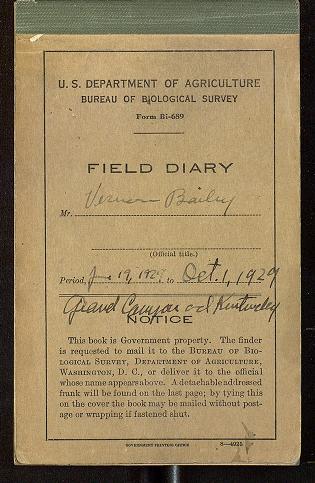 U. S. DEPARTMENT OF AGRICULTURE
BUREAU OF BIOLOGICAL SURVEY
Form Bi-689
FIELD DIARY
Mr. Vernon Bailey
(Official title.)
Period, June 19, 1929 to Oct. 1, 1929
Grand Canyon and Kentucky
NOTICE
This book is Government property. The finder
is requested to mail it to the BUREAU OF BIO-
LOGICAL SURVEY, DEPARTMENT OF AGRICULTURE,
WASHINGTON, D. C., or deliver it to the official
whose name appears above. A detachable addressed
frank will be found on the last page; by tying this
on the cover the book may be mailed without post-
age or wrapping if fastened shut.
GOVERNMENT PRINTING OFFICE 8—4925